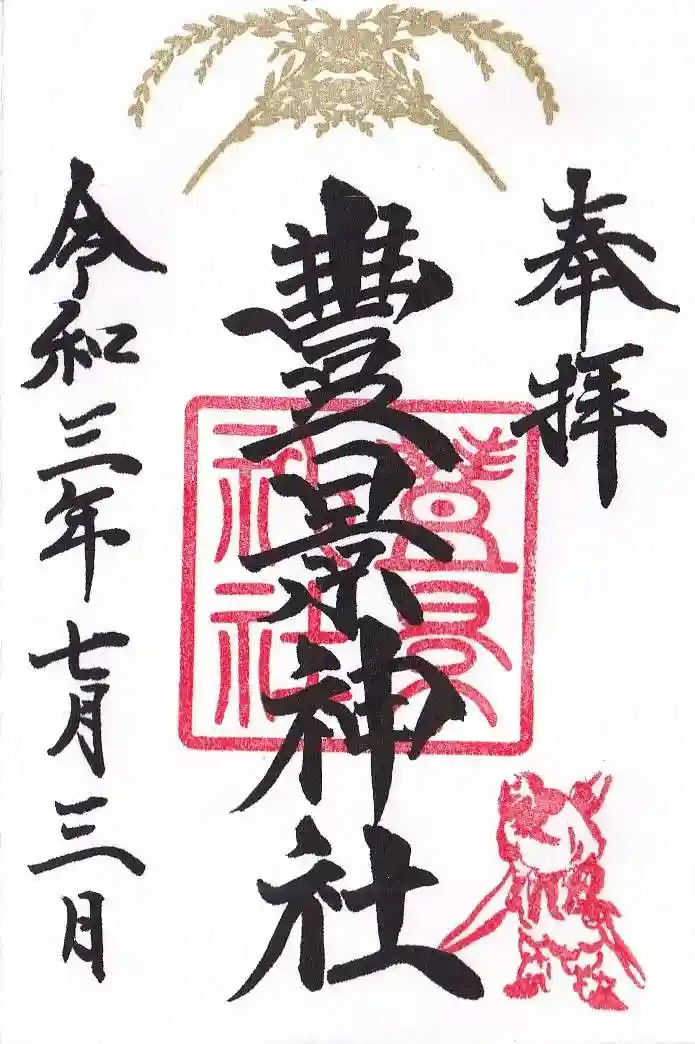 奉拝
豊景神社
令和三年七月三日
神社